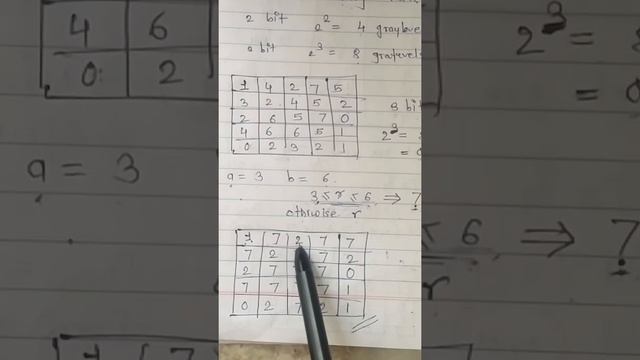 2 bit 2² = 4 graylevel
2 bit 2³ = 8 gratevels
1 4 2 7 5
3 2 4 5 2
2 6 5 7 0
4 6 6 5 1
0 2 3 2 1
8 bit
2³ =
a = 3 b = 6
3 ≤ r ≤ 6 ⇒ 7
othrwise r
1 7 2 7 7
7 2 7 2
2 7 7 0
7 7 7 1
0 2 7 2 1